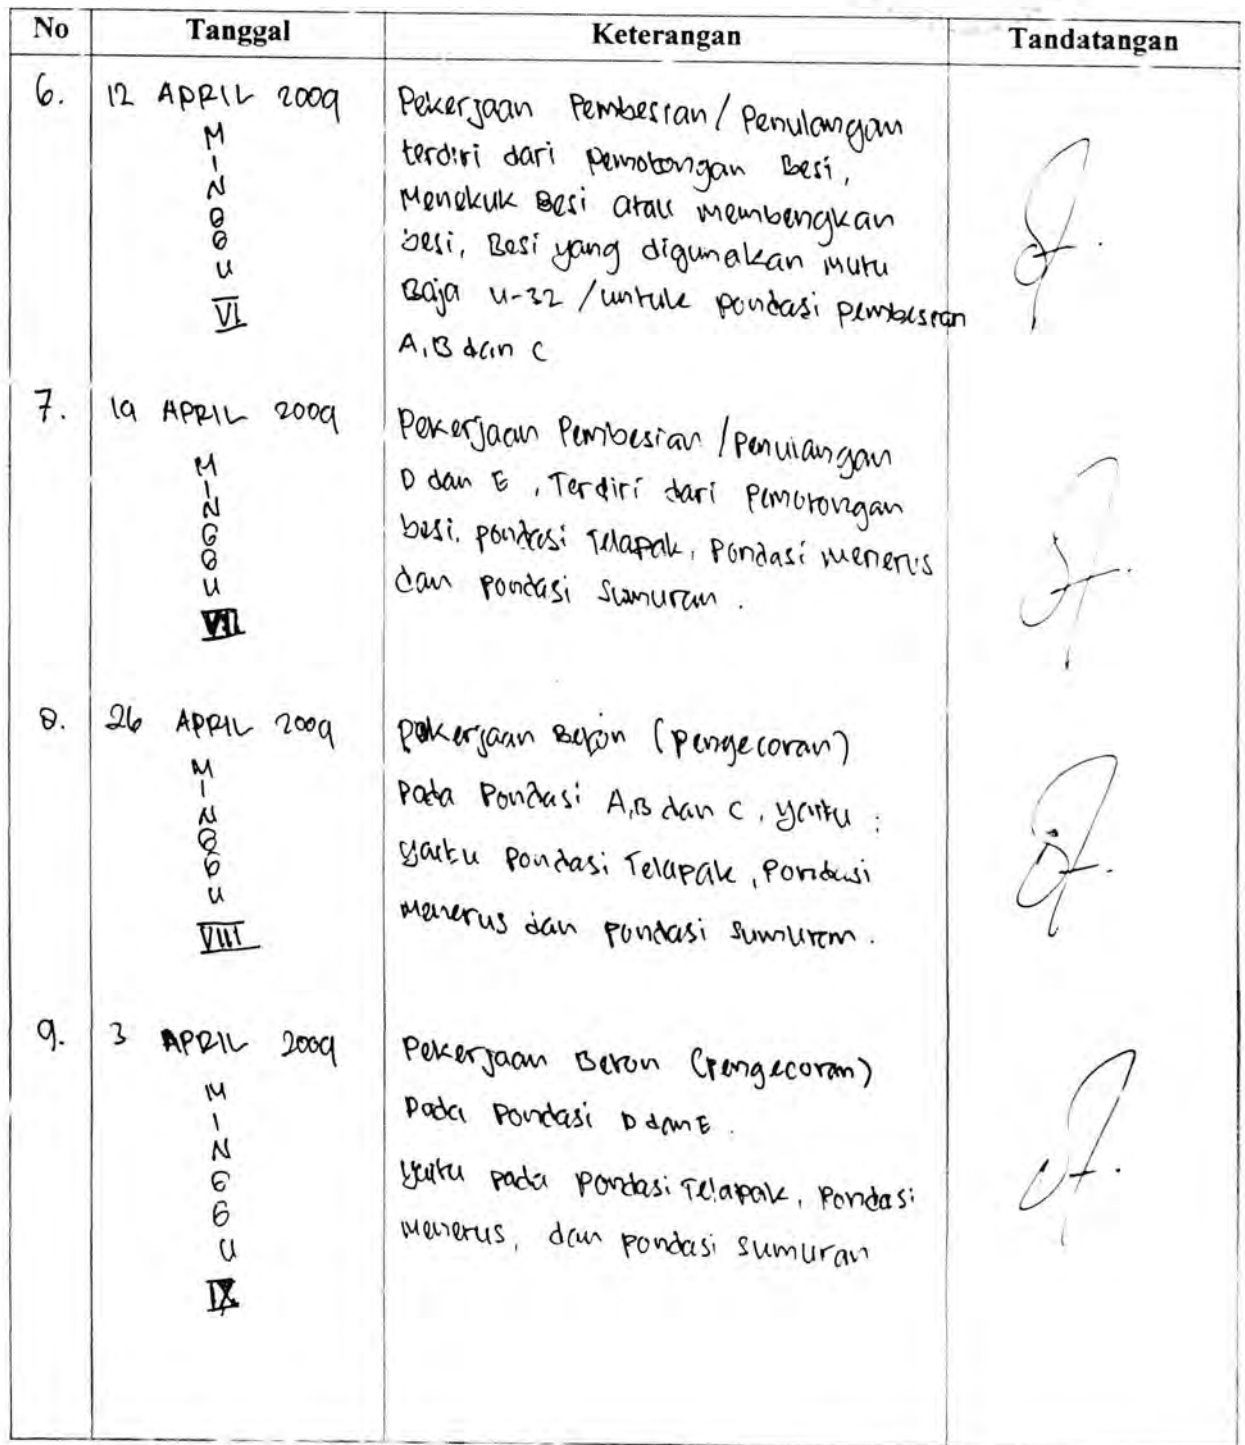 No Tanggal Keterangan Tandatangan
6. 12 APRIL 2009
M
I
N
G
G
U
VI
Pekerjaan Pembesian / Penulangan
terdiri dari pemotongan Besi,
Menekuk Besi atau membengkan
besi, Besi yang digunakan mutu
Baja U-32 / untuk pondasi pembesian
A, B dan C
7. 19 APRIL 2009
M
I
N
G
G
U
VII
Pekerjaan Pembesian / Penulangan
D dan E, Terdiri dari Pemotongan
besi. pondasi Telapak, Pondasi menerus
dan pondasi Sumuran.
8. 26 APRIL 2009
M
I
N
G
G
U
VIII
pekerjaan Beton (Pengecoran)
Pada Pondasi A, B dan C, yaitu :
yaitu Pondasi Telapak, Pondasi
Menerus dan pondasi sumuran.
9. 3 APRIL 2009
M
I
N
G
G
U
IX
Pekerjaan Beton (Pengecoran)
Pada Pondasi D dan E.
yaitu pada pondasi Telapak, Pondasi
menerus, dan pondasi sumuran